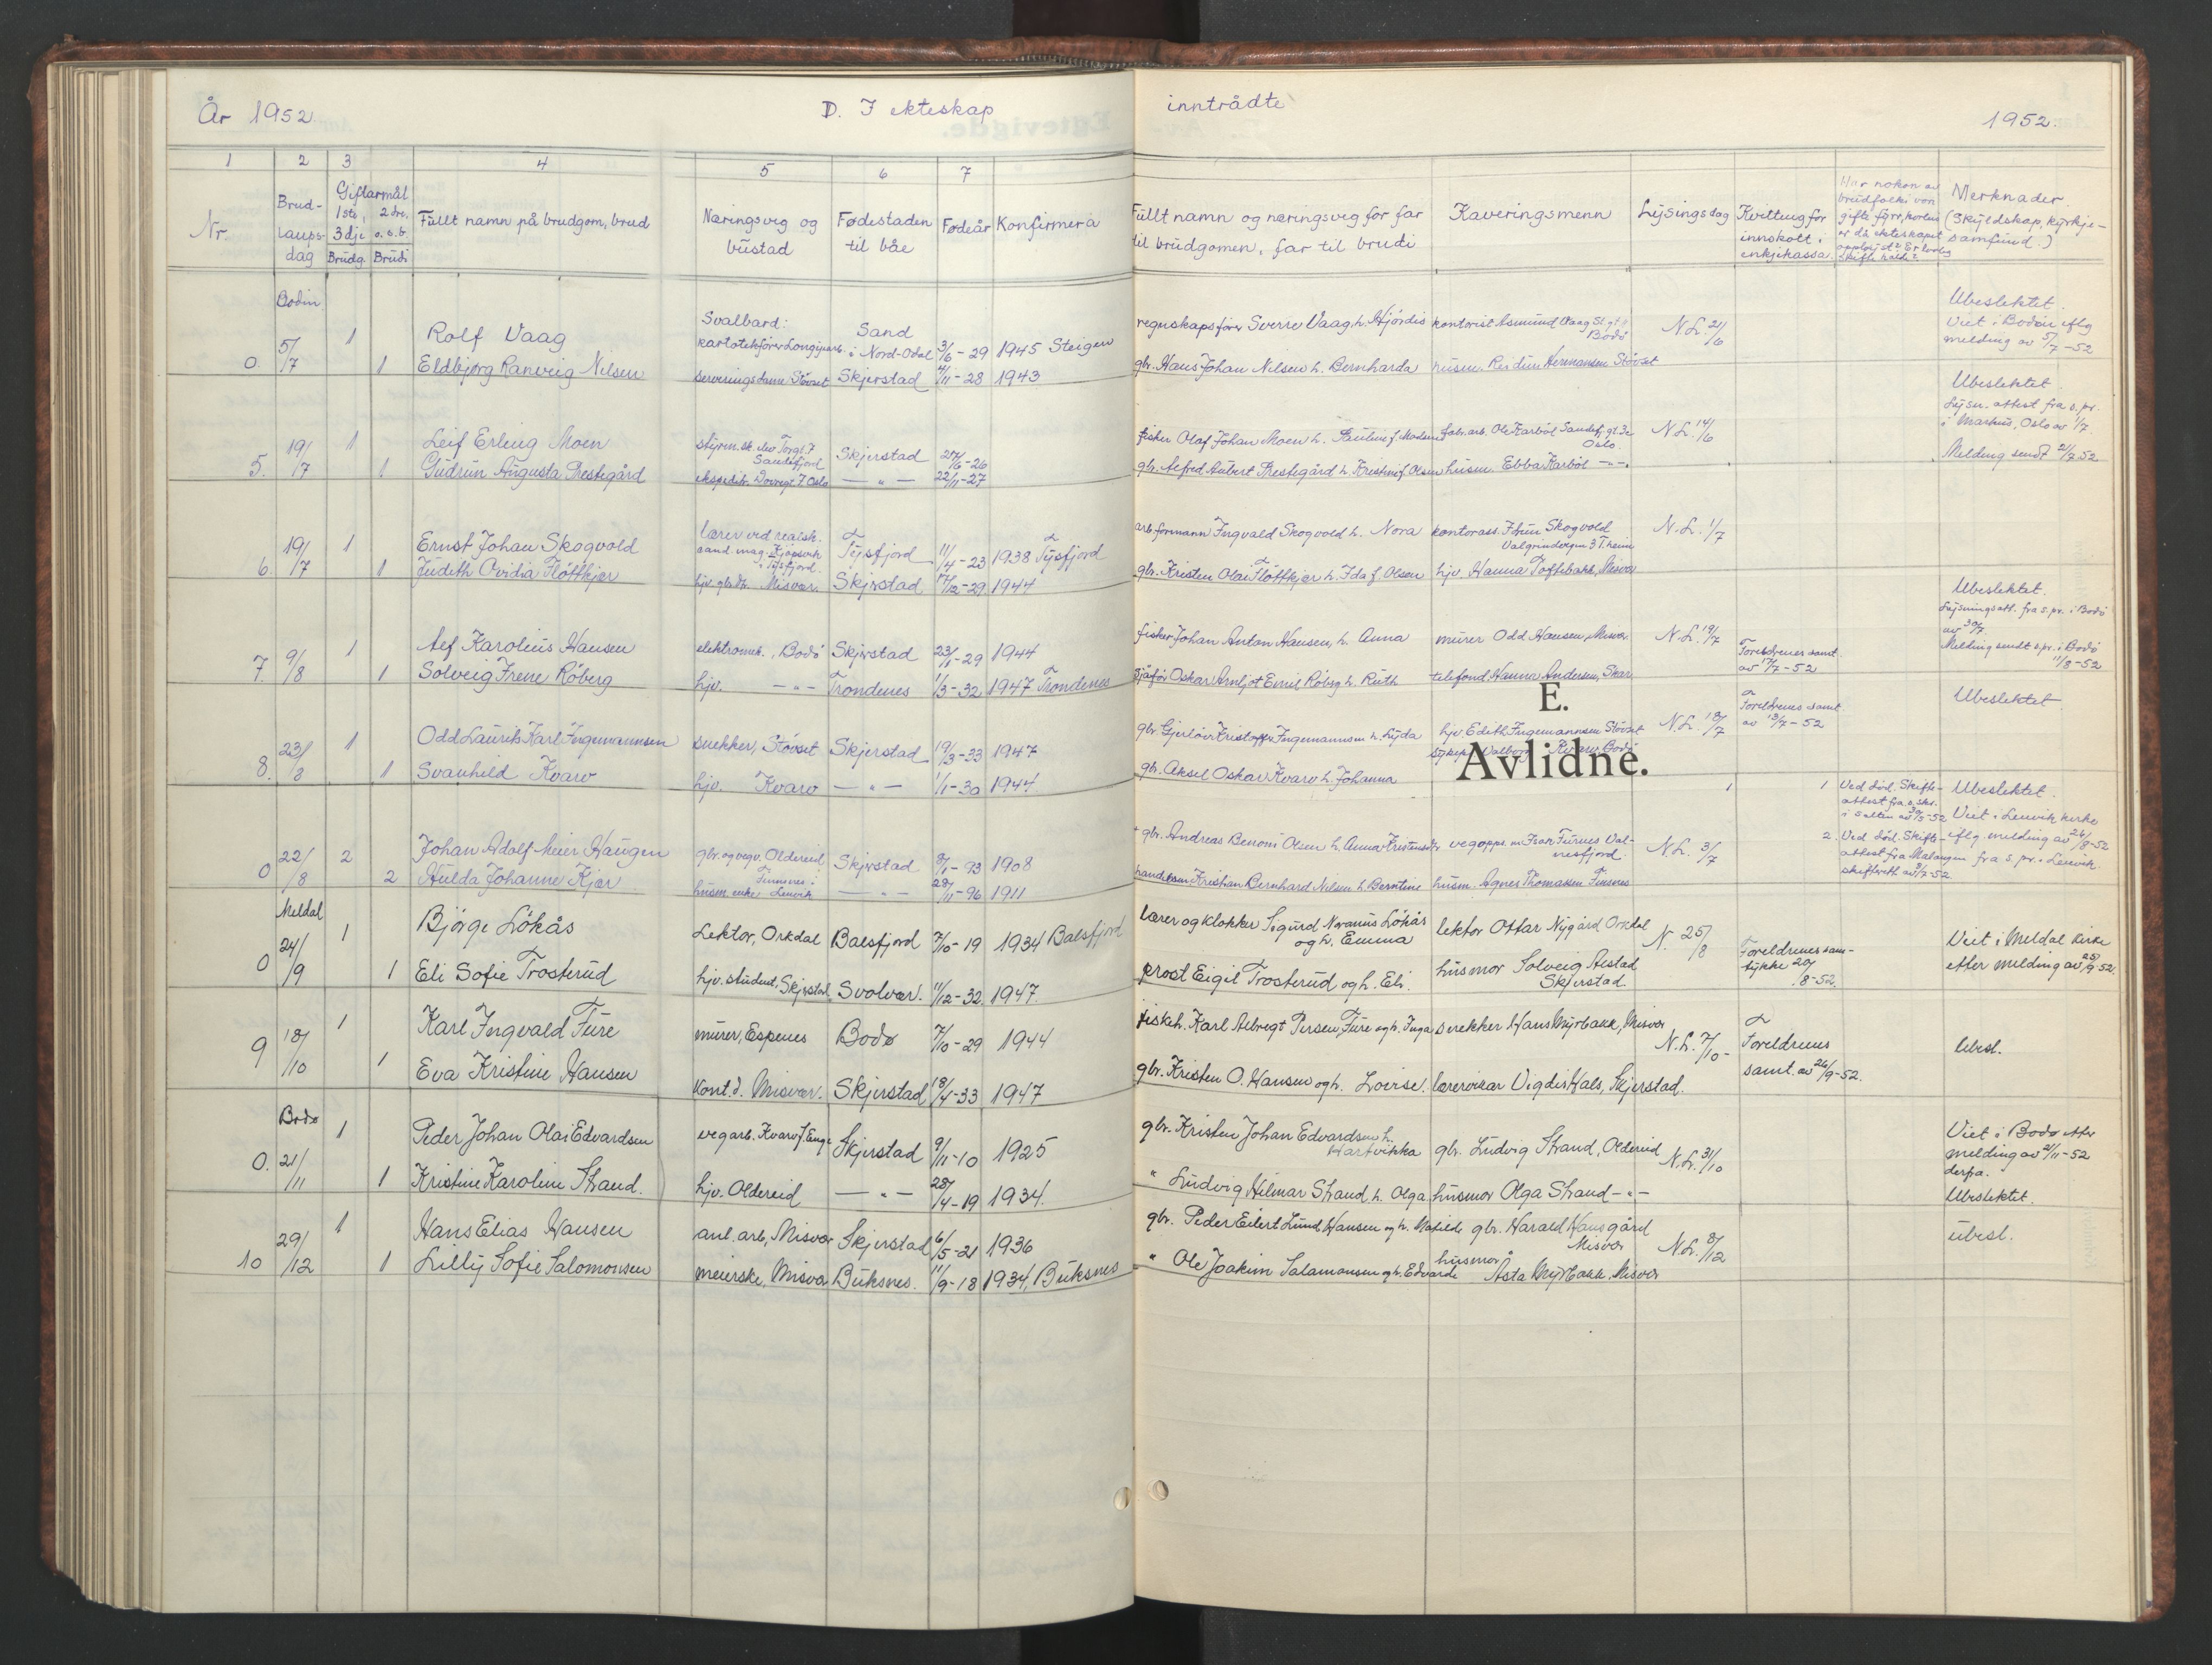 År 1952.
D. I ekteskap
inntrådte
1952.
1 2 3 4 5 6 7
Nr.
Brud-
laups-
dag
Giftarmål
1ste, 2dre,
3dje o.s.b.
Brudg. Brudi
Fullt namn på brudgom, brud
Næringsveg og
bustad
Fødestaden
til båe
Fødeår
Konfirmera
Fullt namn og næringsveg for far
til brudgomen, far til brudi
Kaveringsmenn
Lysingsdag
Kvittung for
innskott i
enkjekassa.
Merknader.
(Skyldskap, kyrkje-
samfund.)
Bodin
0. 5/7 1 Rolf Vaag
Svalbard:
Sand
i Nord-Odal 3/6-29 1945 Steigen
Sverre Vaag, h. Hjördis kontorist Asmund Vaag
Bodö
N.L. 21/6
Ubeslektet.
Viet i Bodin iflg
melding av 5/7-52
1 Eldbjørg Ranveig Nilsen
serveringsdame Stövset Skjerstad 4/11-28 1943
gbr. Hans Johan Nilsen h. Bernharda
Hermansen Stövset
5. 19/7 1 Leif Erling Moen
Sandefjord
Skjerstad 27/6-26
fisker Olaf Johan Moen h.
Oslo
N.L. 14/6
Ubeslektet.
Lysn. attest fra s.pr.
i Markus, Oslo av 1/7.
Melding sendt 21/7 52
1 Gudrun Augusta Prestegård
Oslo — " — 22/11-27
gbr. Alfred Aubert Prestegård h. Kristine f. Olsen husm. Ebba Karböl —"—
6. 19/7 1 Ernst Johan Skogvold
lærer ved realsk.
cand. mag. Kjöpsvik
i Tysfjord.
Tysfjord 11/4-23 1938 Tysfjord
arb.formann Ingvald Skogvold h. Nora kontorass.
Skogvold
3 T.heim
N.L. 1/7
1 Judeth Ovidia Flöttkjær
Misvær. Skjerstad 17/12-29 1944
gbr. Kristen Olai Flöttkjær h. Ida f. Olsen hjv. Hanna Toftebakk, Misvær
7 9/8 1 Alf Karolius Hansen
elektromek., Bodö Skjerstad 23/1-29 1944
fisker Johan Anton Hansen, h. Anna murer Odd Hansen, Misvær N.L. 19/7
Foreldrenes samt.
av 17/7-52
Ubeslektet.
Lysningsatt. fra s.pr. i Bodö
av 30/7.
Melding sendt s.pr. i Bodö
11/8-52
1 Solveig Irene Röberg
hjv. —"— Trondenes 1/3-32 1947 Trondenes
sjåför Oskar Arnljot Emil Röberg h. Ruth telefond. Hanna Andersen, Skar
E.
Avlidne.
8. 23/8 1 Odd Laurits Karl Ingemannsen
snekker, Stövset Skjerstad 19/3-33 1947
Kristoffer Ingemannsen h. Lyda hjv. Edith Ingemannsen Stövset
N.L. 18/7
Foreldrenes samt.
av 13/7-52
Ubeslektet
1 Svanhild Kvarv
hjv. Kvarv — " — 1/1-30 1944
gbr. Aksel Oskar Kvarv h. Johanna
Valborg Kvarv, Bodö
0 22/8 2 Johan Adolf Meier Haugen
Oldereid Skjerstad 8/1-93 1908
gbr. Andreas Benoni Olsen h. Anna
vegopps. m. Isak Furnes Val-
nesfjord.
N.L. 3/7
1 Ved död. Skifte-
attest fra s.skr.
i Salten av
Ubeslektet.
Viet i Lenvik kirke
iflg. melding av 26/8-52
fra s.pr. i Lenvik.
2 Hulda Johanne Kjær
Finnsnes i
husm. enke Lenvik — " — 28/11-96 1911
Kristian Bernhard Nilsen h. Berntine husm. Agnes Thomassen Finsnes
2. Ved död. Skifte-
attest fra Malangen
Meldal
0 24/9 1 Björge Lökås
Lektor, Orkdal Balsfjord 7/10-19 1934 Balsfjord
lærer og klokker Sigurd Normus Lökås
og h. Emma
lektor Ottar Nygård Orkdal
N. 25/8
Foreldrenes sam-
tykke 20/8-52.
Viet i Meldal kirke
etter melding av 25/9-52.
1 Eli Sofie Trosterud
hjv. student, Skjerstad Svolvær. 11/12-32. 1947.
prost Eigil Trosterud og h. Eli.
husmor Solveig Alstad
Skjerstad.
9 18/10 1 Karl Ingvald Fure
murer, Espenes Bodø 7/10-29 1944
fiskeh. Karl Albregt Persen Fure og h. Inga snekker Hans Myrbakk, Misvær
N.L. 7/10-
Foreldrenes
samt. av 26/9-52.
Ubesl.
1 Eva Kristine Hansen
kont.d. Misvær. Skjerstad 18/4-33 1947
gbr. Kristen O. Hansen og h. Lovise. lærervikar Vigdis Hals, Skjerstad.
Bodø
0. 21/11 1 Peder Johan Olai Edvardsen
vegarb. Kvarv Skjerstad 9/11-10 1925
gbr. Kristen Johan Edvardsen h.
Hartvikka
gbr. Ludvig Strand, Oldereid N.L. 31/10
Viet i Bodø etter
melding av 21/11-52
derfra.
Ubeslektet.
1 Kristine Karoline Strand.
hjv. Oldereid — " — 28/4-19 1934.
" Ludvig Hilmar Strand, h. Olga husmor Olga Strand —"—
10 29/12 1 Hans Elias Hansen
anl. arb., Misvær Skjerstad 6/5-21 1936
gbr. Peder Eilert Lund Hansen og h. Matilde gbr. Harald Hansgård
Misvær
N.L. 8/12
ubesl.
1 Lilly Sofie Salomonsen
meierske, Misvær Buksnes. 11/9-18 1934, Buksnes
" Ole Joakim Salamonsen og h. Edvarda
husmor
Asta Myrbakk, Misvær